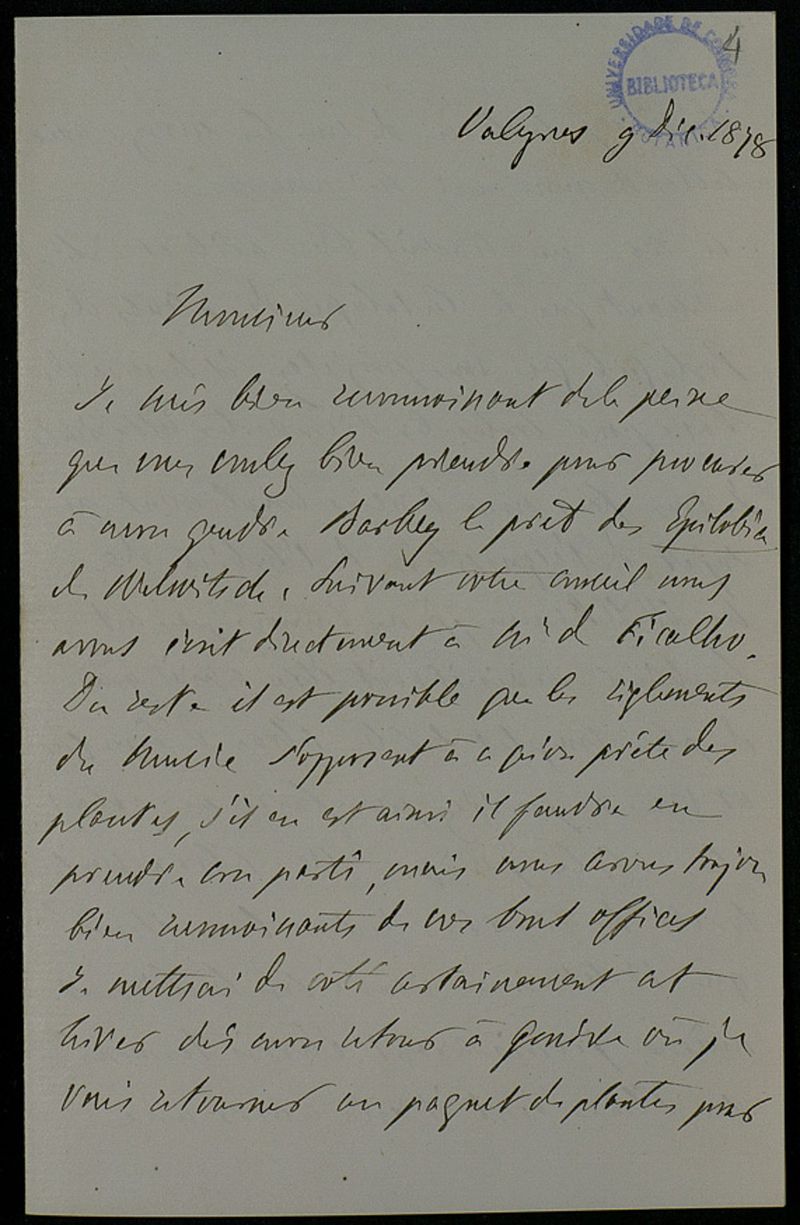 UNIVERSIDADE DE COIMBRA
BIBLIOTECA
BOTANICA
4
Valeyres 9 Déc. 1878
Monsieur
Je suis bien reconnoissant de la peine
que vous voulez bien prendre pour procurer
à mon gendre Barbey le prêt des Epilobia
de Welwitsch. Suivant votre conseil nous
avons écrit directement à Mr d Ficalho.
Du reste il est possible que les règlements
du Musée s'opposent à ce qu'on prête des
plantes, s'il en est ainsi il faudra en
prendre son parti, mais nous serons toujours
bien reconnoissants de vos bons offices
Je mettrai de coté certainement cet
hiver dès mon retour à Genève où je
vais retourner un paquet de plantes pour